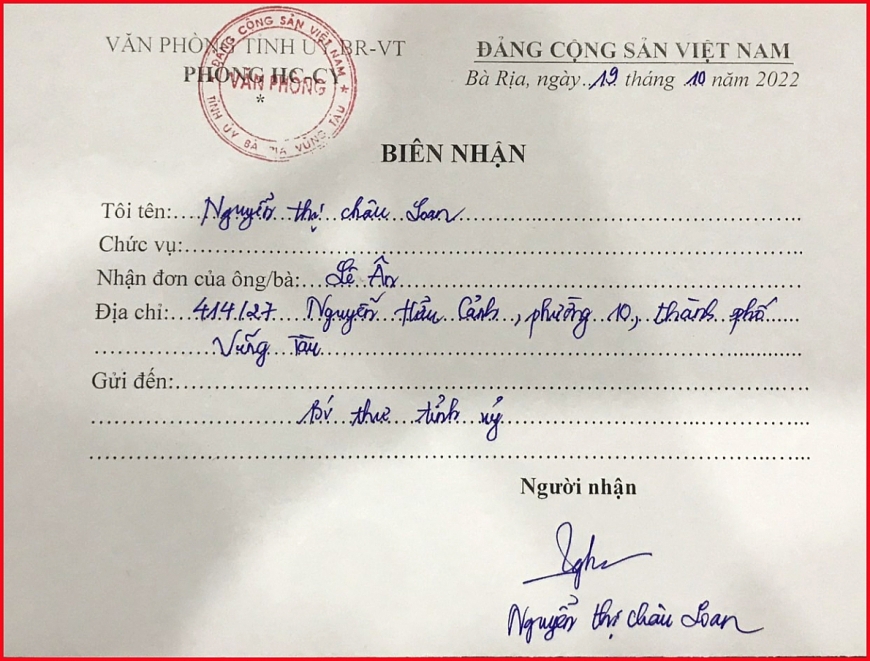 VĂN PHÒNG TỈNH ỦY BR-VT
PHÒNG HC-CY
*
ĐẢNG CỘNG SẢN VIỆT NAM
VĂN PHÒNG
TỈNH ỦY BÀ RỊA VŨNG TÀU
ĐẢNG CỘNG SẢN VIỆT NAM
Bà Rịa, ngày 19 tháng 10 năm 2022
BIÊN NHẬN
Tôi tên: Nguyễn thị châu Loan
Chức vụ:
Nhận đơn của ông/bà: Lê Ân
Địa chỉ: 414/27 Nguyễn Hữu Cảnh, phường 10, thành phố
Vũng Tàu
Gửi đến:
Bí thư tỉnh uỷ
Người nhận
Nguyễn thị châu Loan